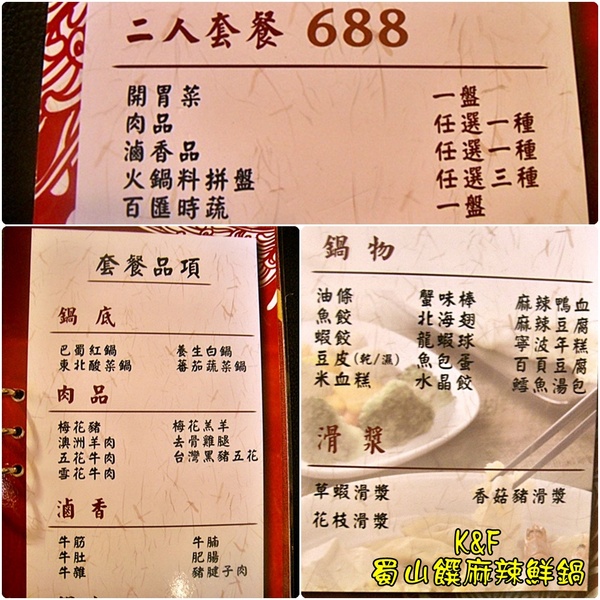 二人套餐 688
開胃菜 一盤
肉品 任選一種
滷香品 任選一種
火鍋料拼盤 任選三種
百匯時蔬 一盤
套餐品項
鍋底
巴蜀紅鍋 養生白鍋
東北酸菜鍋 蕃茄蔬菜鍋
肉品
梅花豬 梅花羔羊
澳洲羊肉 去骨雞腿
五花牛肉 台灣黑豬五花
雪花牛肉
滷香
牛筋 牛腩
牛肚 肥腸
牛雜 豬腱子肉
鍋物
油條 蟹味棒 麻辣鴨血
魚餃 北海翅 麻辣豆腐
蝦餃 龍蝦球 寧波年糕
豆皮(乾/濕) 魚包蛋 百頁豆腐
米血糕 水晶餃 鱈魚湯包
滑漿
草蝦滑漿 香菇豬滑漿
花枝滑漿
K&F
蜀山饌麻辣鮮鍋